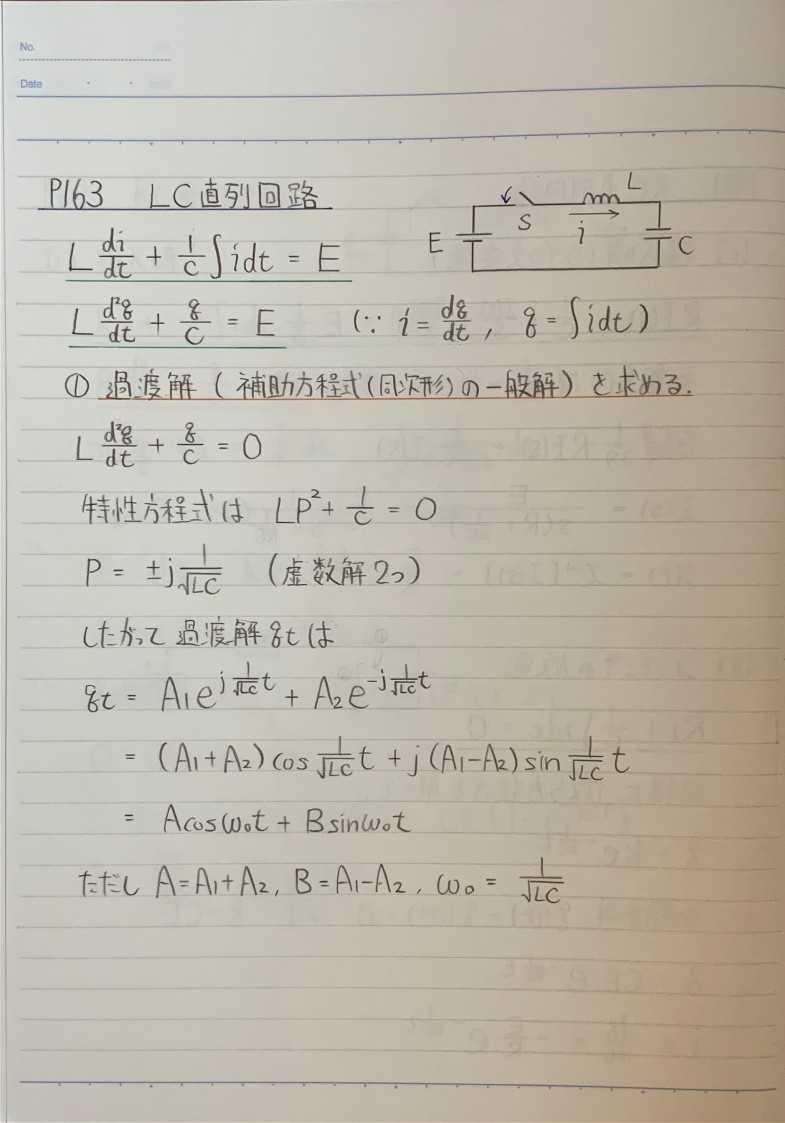 No.
Date
P163 LC直列回路
L di/dt + 1/C ∫idt = E
E S i L C
L d²q/dt + q/C = E (∵ i = dq/dt, q = ∫idt)
① 過渡解(補助方程式(同次形)の一般解)を求める.
L d²q/dt + q/C = 0
特性方程式は LP² + 1/C = 0
P = ±j 1/√LC (虚数解2つ)
したがって過渡解qtは
qt = A₁e^(j 1/√LC t) + A₂e^(-j 1/√LC t)
= (A₁+A₂)cos 1/√LC t + j(A₁-A₂)sin 1/√LC t
= Acosω₀t + Bsinω₀t
ただし A=A₁+A₂, B=A₁-A₂, ω₀ = 1/√LC